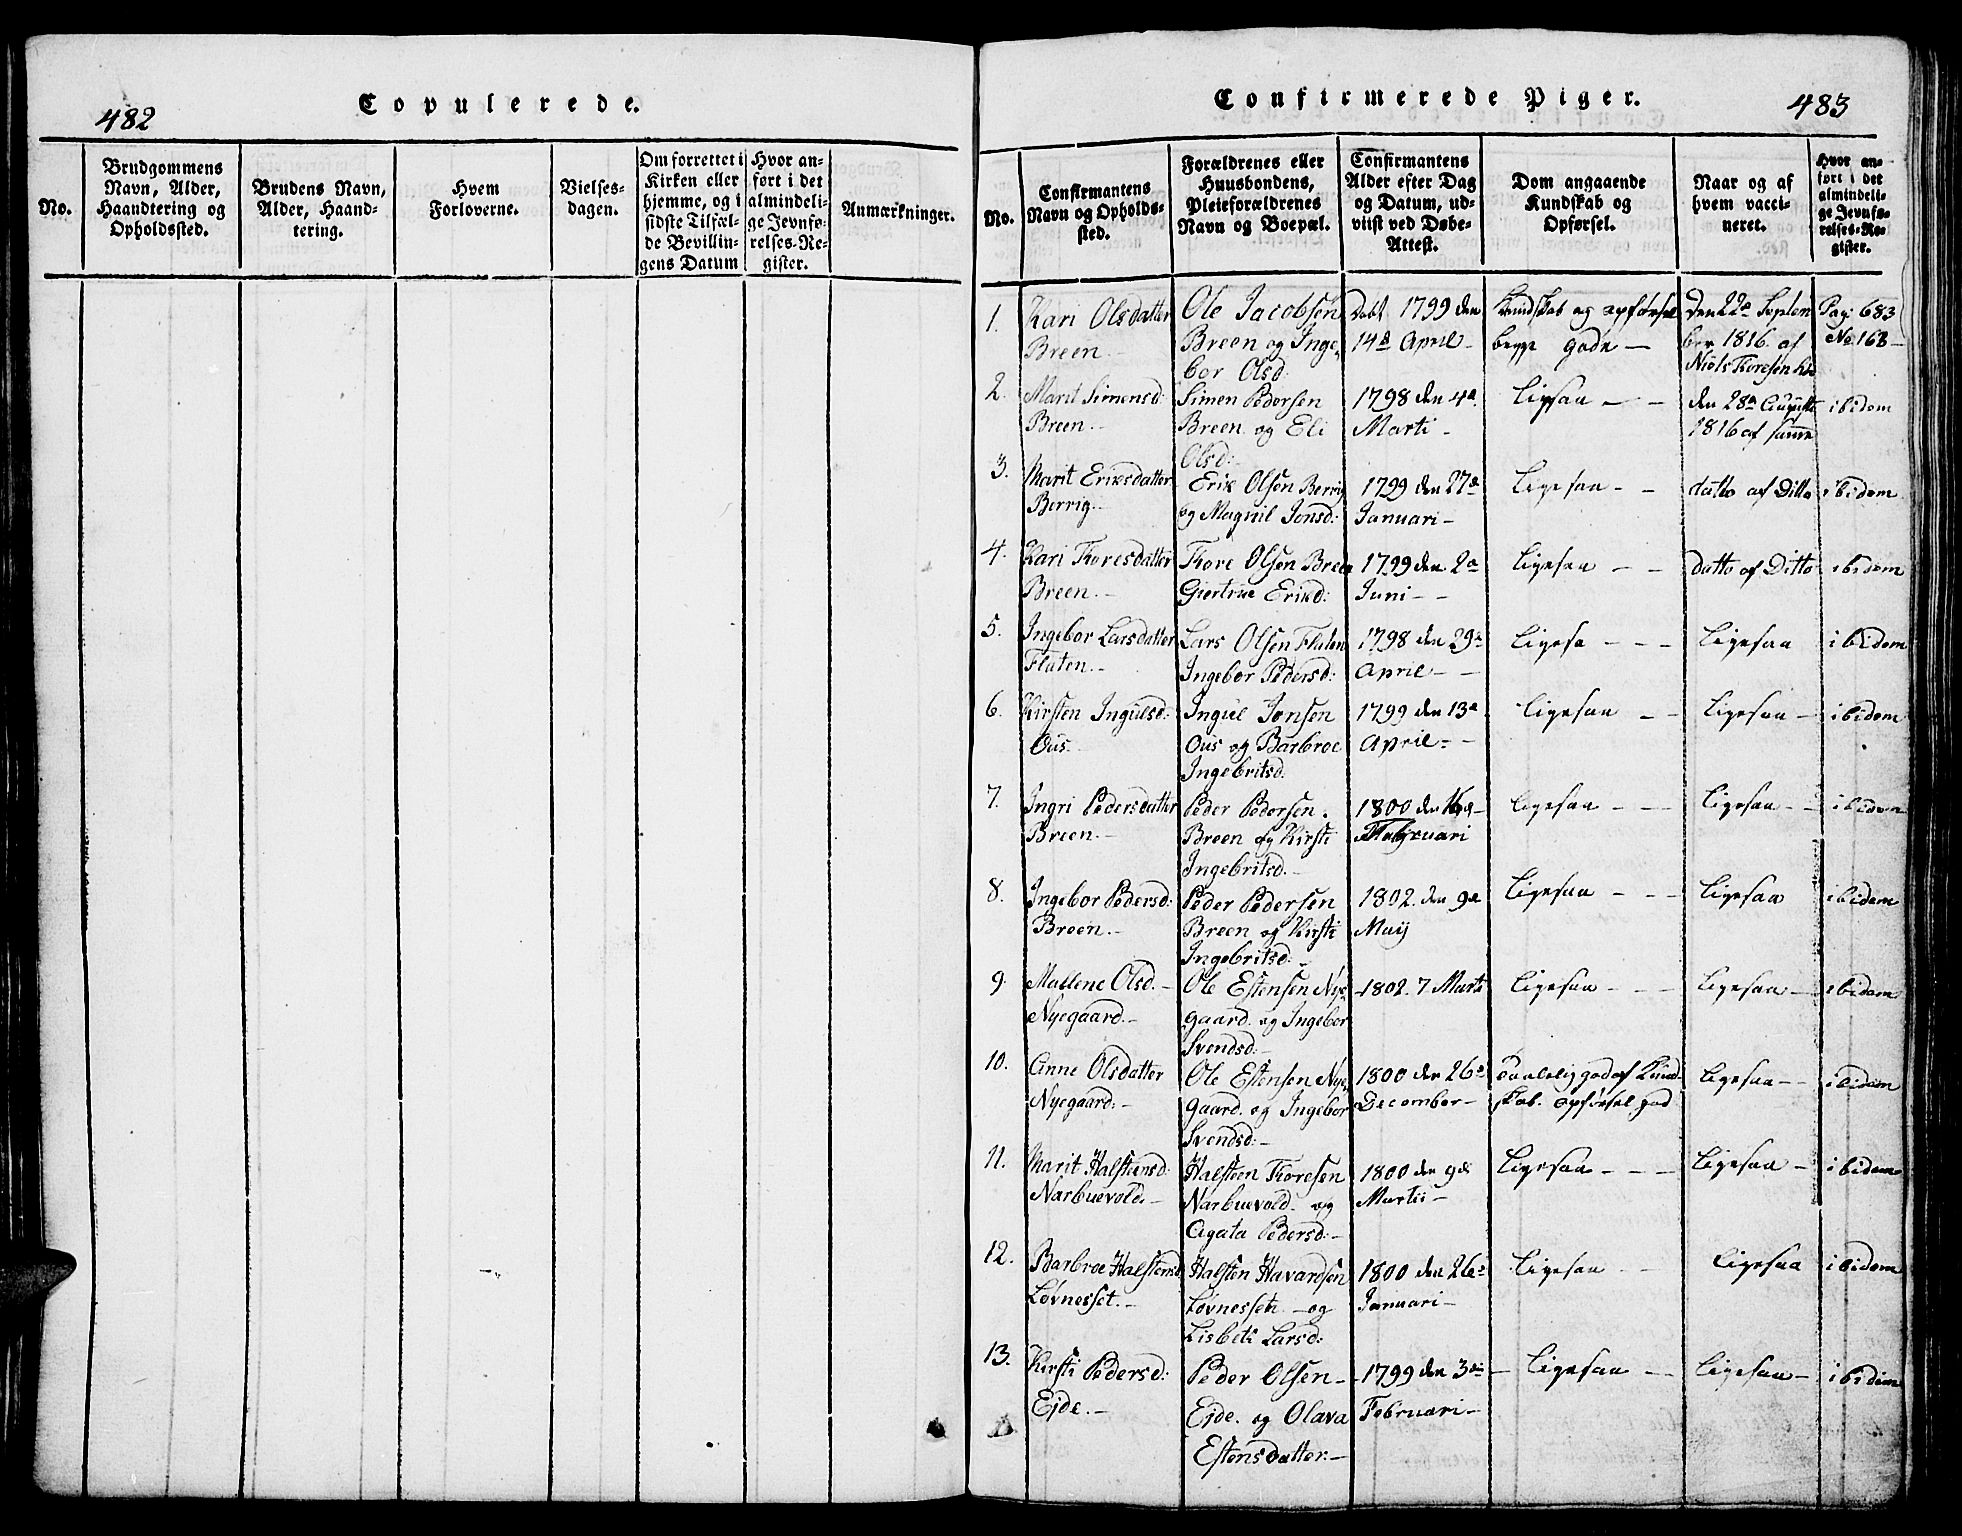 482
Copulerede.
No.
Brudgommens
Navn, Alder,
Haandtering og
Opholdssted.
Brudens Navn,
Alder, Haand-
tering.
Hvem
Forloverne.
Vielses-
dagen.
Om forrettet i
Kirken eller
hjemme, og i
sidste Tilfæl-
de Bevillin-
gens Datum
Hvor an-
ført i det
almindeli-
ge Jevnfø-
relses-Re-
gister.
Anmærkninger.
Confirmerede Piger.
483
No.
Confirmantens
Navn og Opholds-
sted.
Forældrenes eller
Huusbondens,
Pleieforældrenes
Navn og Boepæl.
Confirmantens
Alder efter Dag
og Datum, ud-
viist ved Døbe-
Attest.
Dom angaaende
Kundskab og
Opførsel.
Naar og af
hvem vacci-
neret.
Hvor an-
ført i det
almindeli-
ge Jevnfø-
relses-Re-
gister.
1.
Kari Olsdatter
Breen.-
Ole Jacobsen
Breen og Inge-
bor Olsd.
Døbt 1799 den
14d April -
Kundskab og opførsel
begge gode -
Den 22de Septem
ber 1816 af
Niels Thoresen
Pag: 683
No 163 -
2.
Marit Simensd:
Breen.-
Simen Pedersen
Breen og Eli
Olsd:
1798 den 4de
Marti -
Ligesaa - -
den 28de Augusti
1816 af samme
ibidem
3.
Marit Ericsdatter
Berrig.-
Eric Olsen Berrig
og Magnil Jonsd:
1799 den 27de
Januari -
Ligesaa - -
datto af Ditto
ibidem
4.
Kari Thoresdatter
Breen.-
Thore Olsen Breen
Giertrue Ericd:
1799 den 2de
Juni - -
Ligesaa - -
datto af Ditto
ibidem
5.
Ingebor Larsdatter
Flaten.-
Lars Olsen Flaten
Ingebor Pedersd:
1798 den 29de
April - -
Ligesa - - -
Ligesaa
ibidem
6.
Kirsten Ingulsd:
Ous.
Ingul Jonsen
Ous og Barbroe
Ingebritsd.
1799 den 13de
April - -
Ligesaa - -
Ligesaa -
ibidem
7.
Ingri Pedersdatter
Breen.-
Peder Pedersen.
Breen og Kirsti
Ingebritsd.-
1800 den 16de -
Februari
Ligesaa - - -
Ligesaa - -
ibidem
8.
Ingebor Pedersd:
Breen.-
Peder Pedersen
Breen og Kirsti
Ingebritsd:-
1802. den 9de
Maij
Ligesaa - - -
Ligesaa
ibidem
9.
Mallene Olsd.-
Nyegaard.-
Ole Estensen Nye-
gaard. og Ingebor
Svendsd:-
1802. 7 Marti
Ligesaa - - -
Ligesaa -
ibidem
10.
Anne Olsdatter
Nyegaard:-
Ole Estensen Nye-
gaard. og Ingebor
Svendsd:-
1800 den 26de
December -
Taalelig god af Kund-
skab. opførsel god
Ligesaa - -
ibidem
11.
Marit Halstensd:
Narbuevold.-
Halsteen Thoresen
Narbuevold. og
Agata Pedersd:-
1800 den 9de
Martii -
Ligesaa - - -
Ligesaa -
ibidem
12.
Barbroe Halstensd.
Løvnesset.-
Halsten Havardsen
Løvnesset - og
Lisbeth Larsd:
1800 den 26de
Januari -
Ligesaa - -
Ligesaa
ibidem
13.
Kirsti Pedersd:
Eide.-
Peder Olsen -
Eide. og Olava
Estensdatter:-
1799 den 3die -
Februari -
Ligesaa - -
Ligesaa -
ibidem